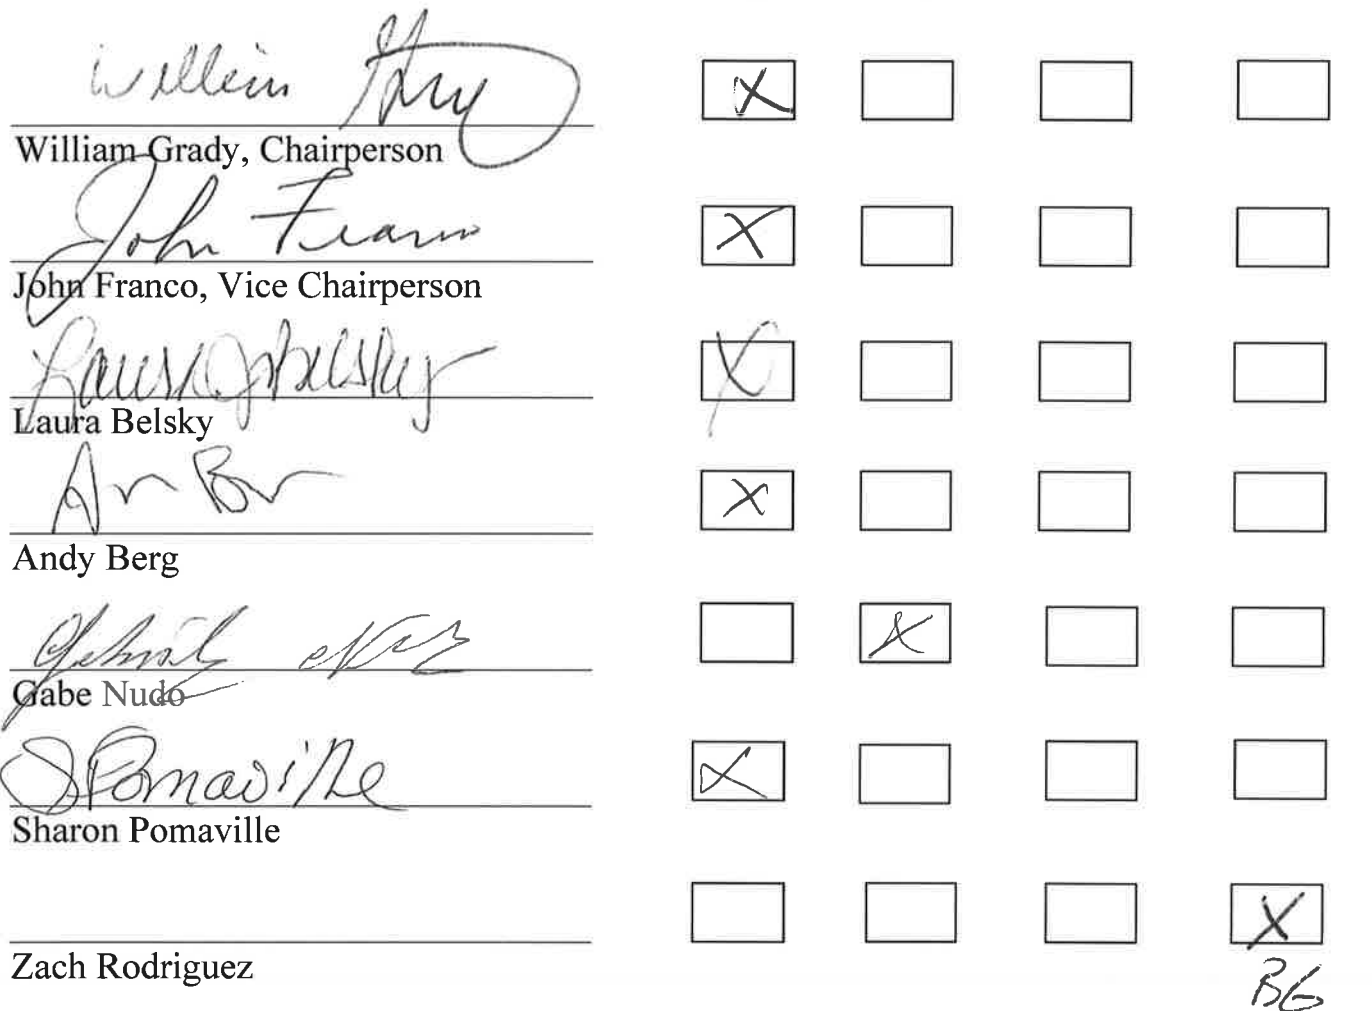 William Grady
William Grady, Chairperson
John Franco
John Franco, Vice Chairperson
Laura J Belsky
Laura Belsky
Andy Berg
Gabe Nudo
S Pomaville
Sharon Pomaville
Zach Rodriguez
BG